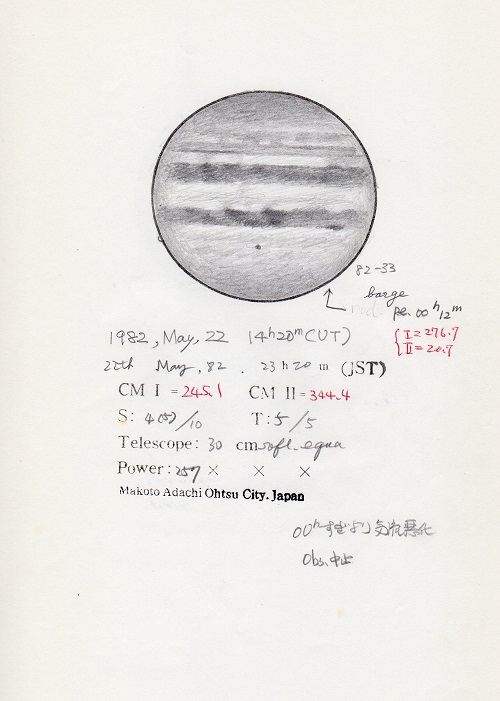 82-33
barge
00ʰ12ᵐ
{ I = 276.7
II = 20.9
1982, May, 22 14ʰ20ᵐ (UT)
22th May, 82. 23 h 20 m (JST)
CM I = 245.1 CM II = 344.4
S: 4(5)/10 T: 5/5
Telescope: 30 cm refl. equa
Power: 257 × × ×
Makoto Adachi Ohtsu City. Japan
00ʰすぎより気流悪化
Obs. 中止